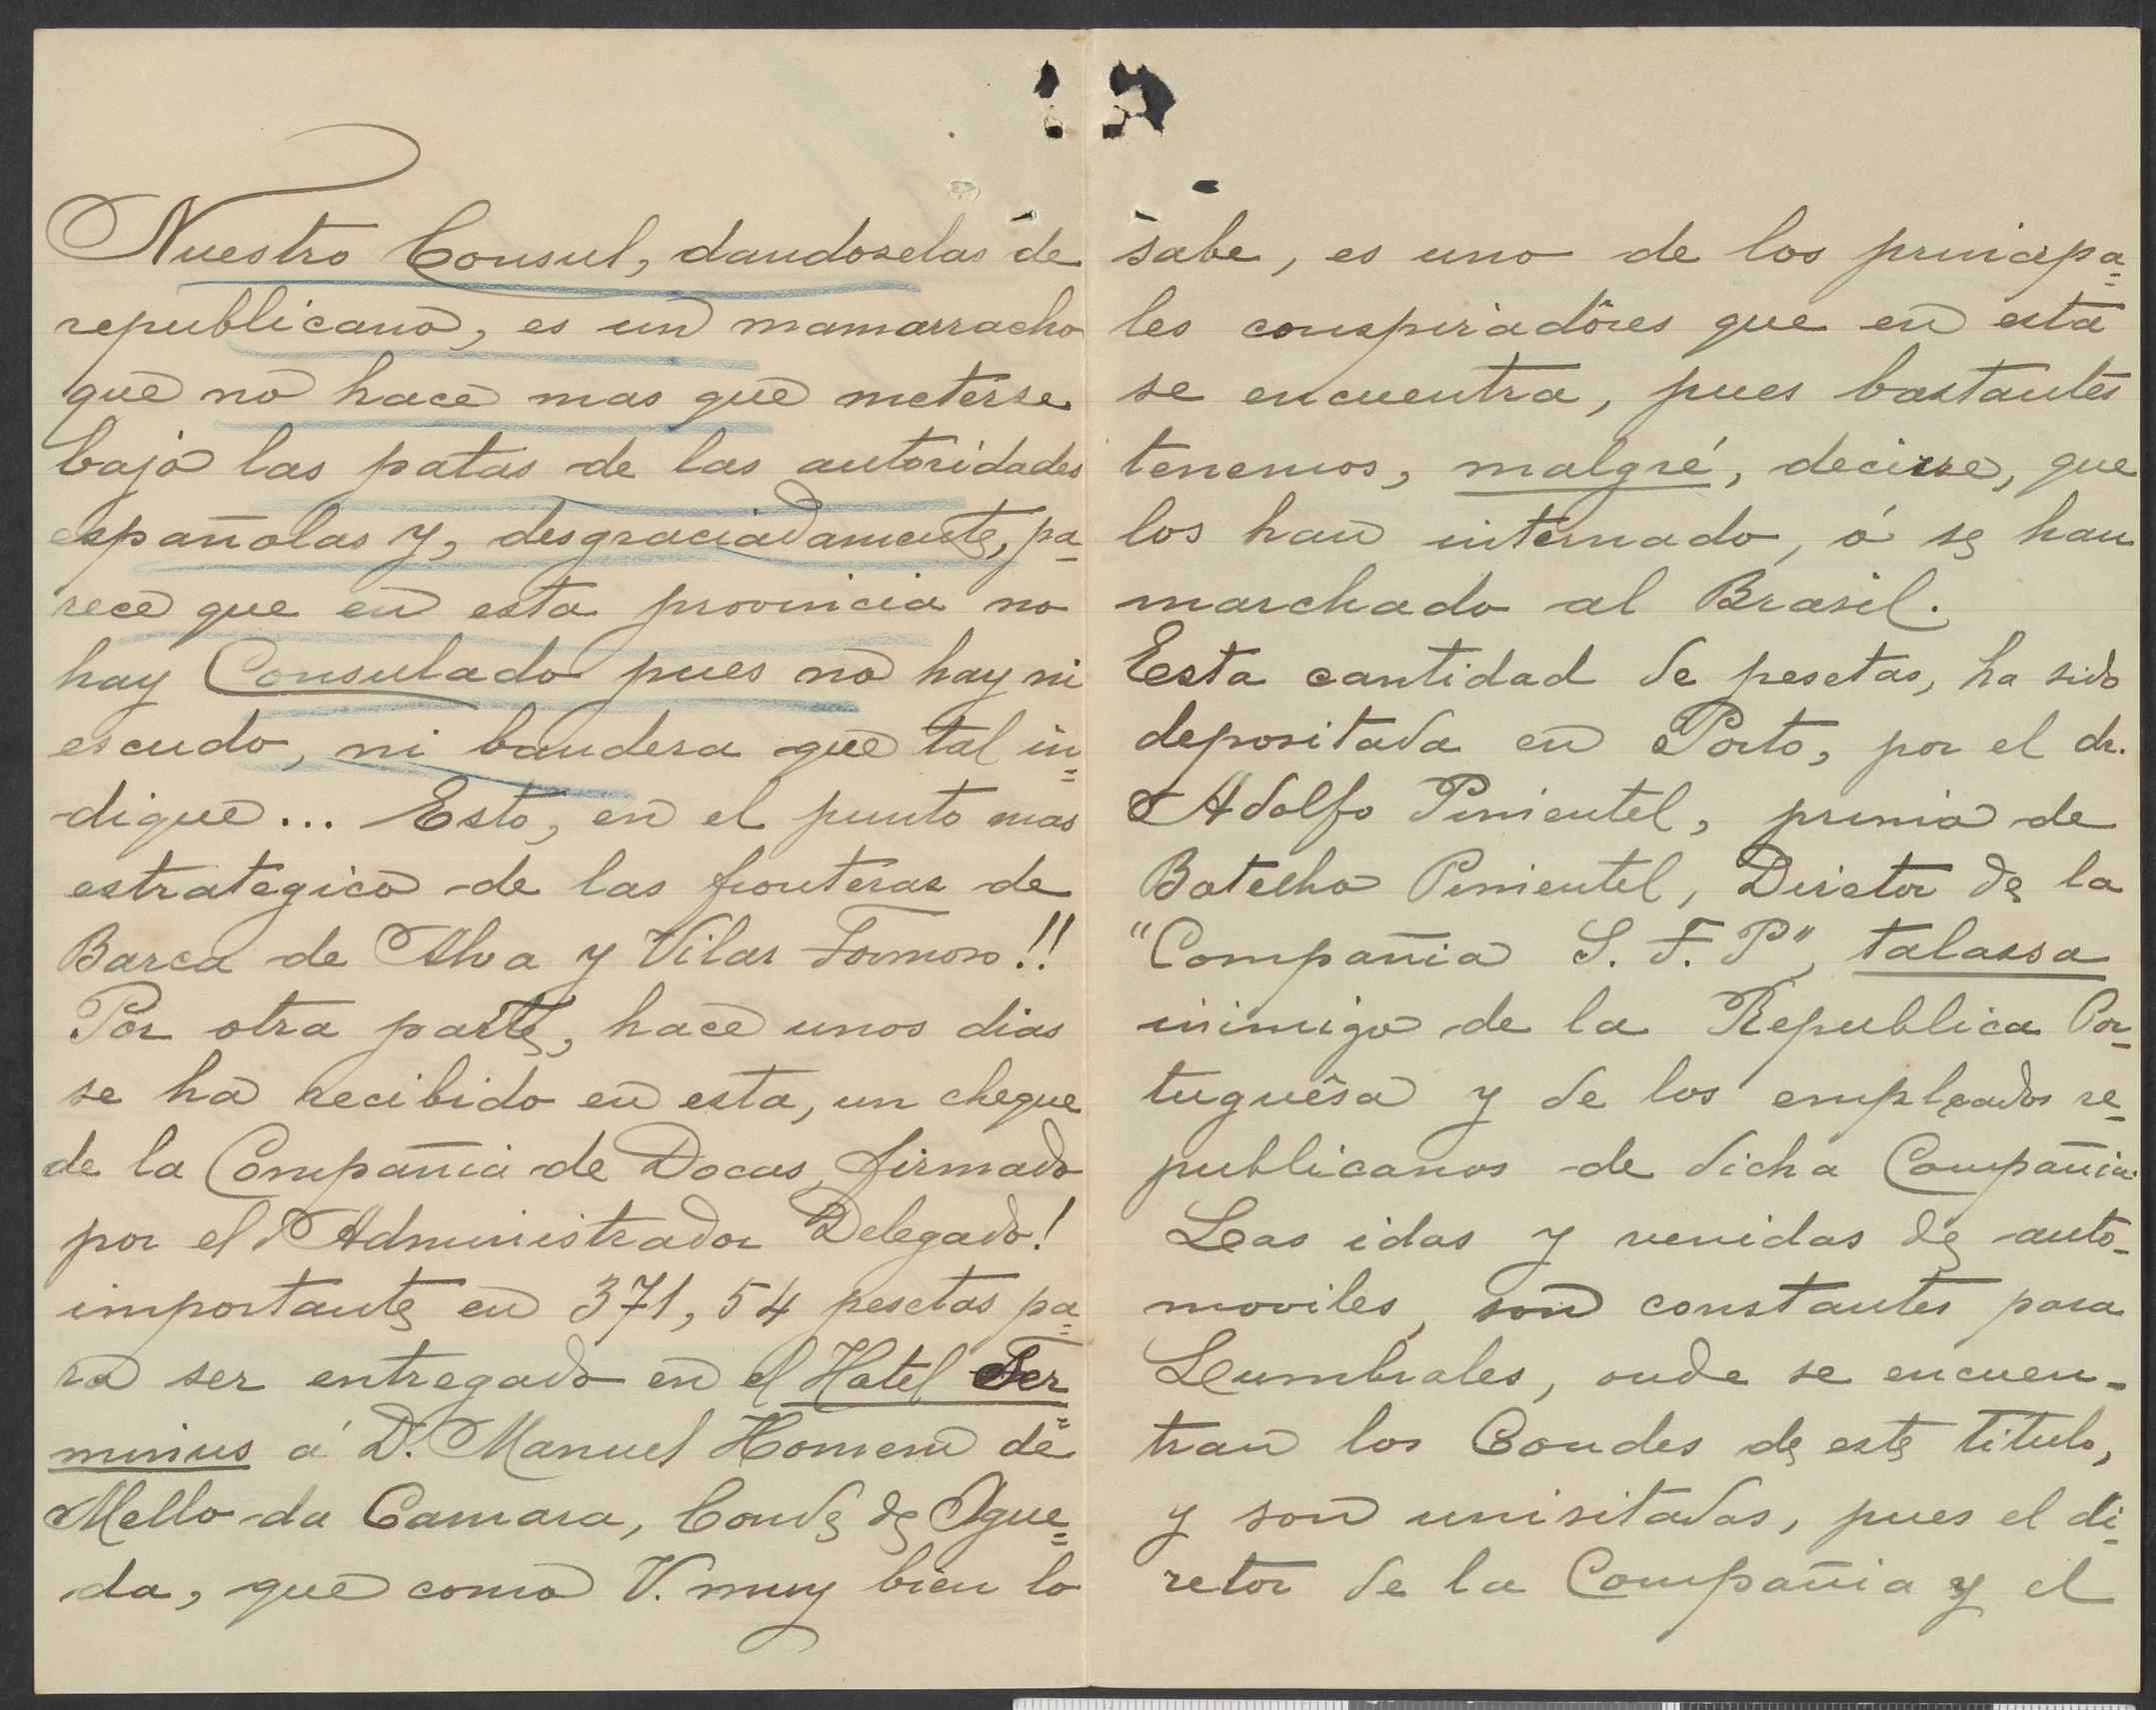 Nuestro Consul, dandoselas de
republicano, es un mamarracho
que no hace mas que meterse
bajo las patas de las autoridades
españolas y, desgraciadamente, pa=
rece que en esta provincia no
hay Consulado pues no hay ni
escudo, ni bandera que tal in=
dique... Esto, en el punto mas
estrategico de las fronteras de
Barca de Alva y Vilar Formoso!!
Por otra parte, hace unos dias
se ha recibido en esta, un cheque
de la Compañia de Docas, firmado
por el Administrador Delegado!
importante en 371,54 pesetas pa=
ra ser entregado en el Hotel Ter=
minius á D. Manuel Homem de
Mello da Camara, Conde de Ague=
da, que como V. muy bien lo
sabe, es uno de los principa=
les conspiradores que en esta
se encuentra, pues bastantes
tenemos, malgré, decirse, que
los han internado, ó se han
marchado al Brasil.
Esta cantidad de pesetas, ha sido
depositada en Porto, por el dr.
Adolfo Pimentel, primo de
Botelho Pimentel, Diretor de la
"Compañia S. F. P", talassa
inimigo de la Republica Por-
tuguêsa y de los empleados re-
publicanos de dicha Compañia.
Las idas y venidas de auto-
moviles, son constantes para
Lumbrales, onde se encuen-
tran los Condes de este titulo,
y son unisitadas, pues el di-
retor de la Compañia y el